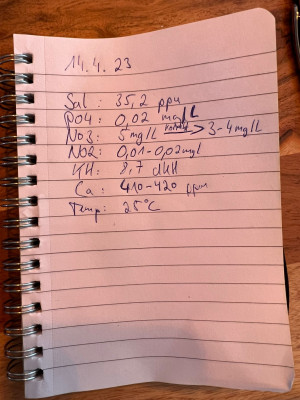 14.4.23
Sal: 35,2 ppm
PO4: 0,02 mg/L
NO3: 5 mg/L > 3-4mg/L
NO2: 0,01-0,02mg/l
KH: 8,7 dKH
Ca: 410-420 ppm
Temp: 25°C